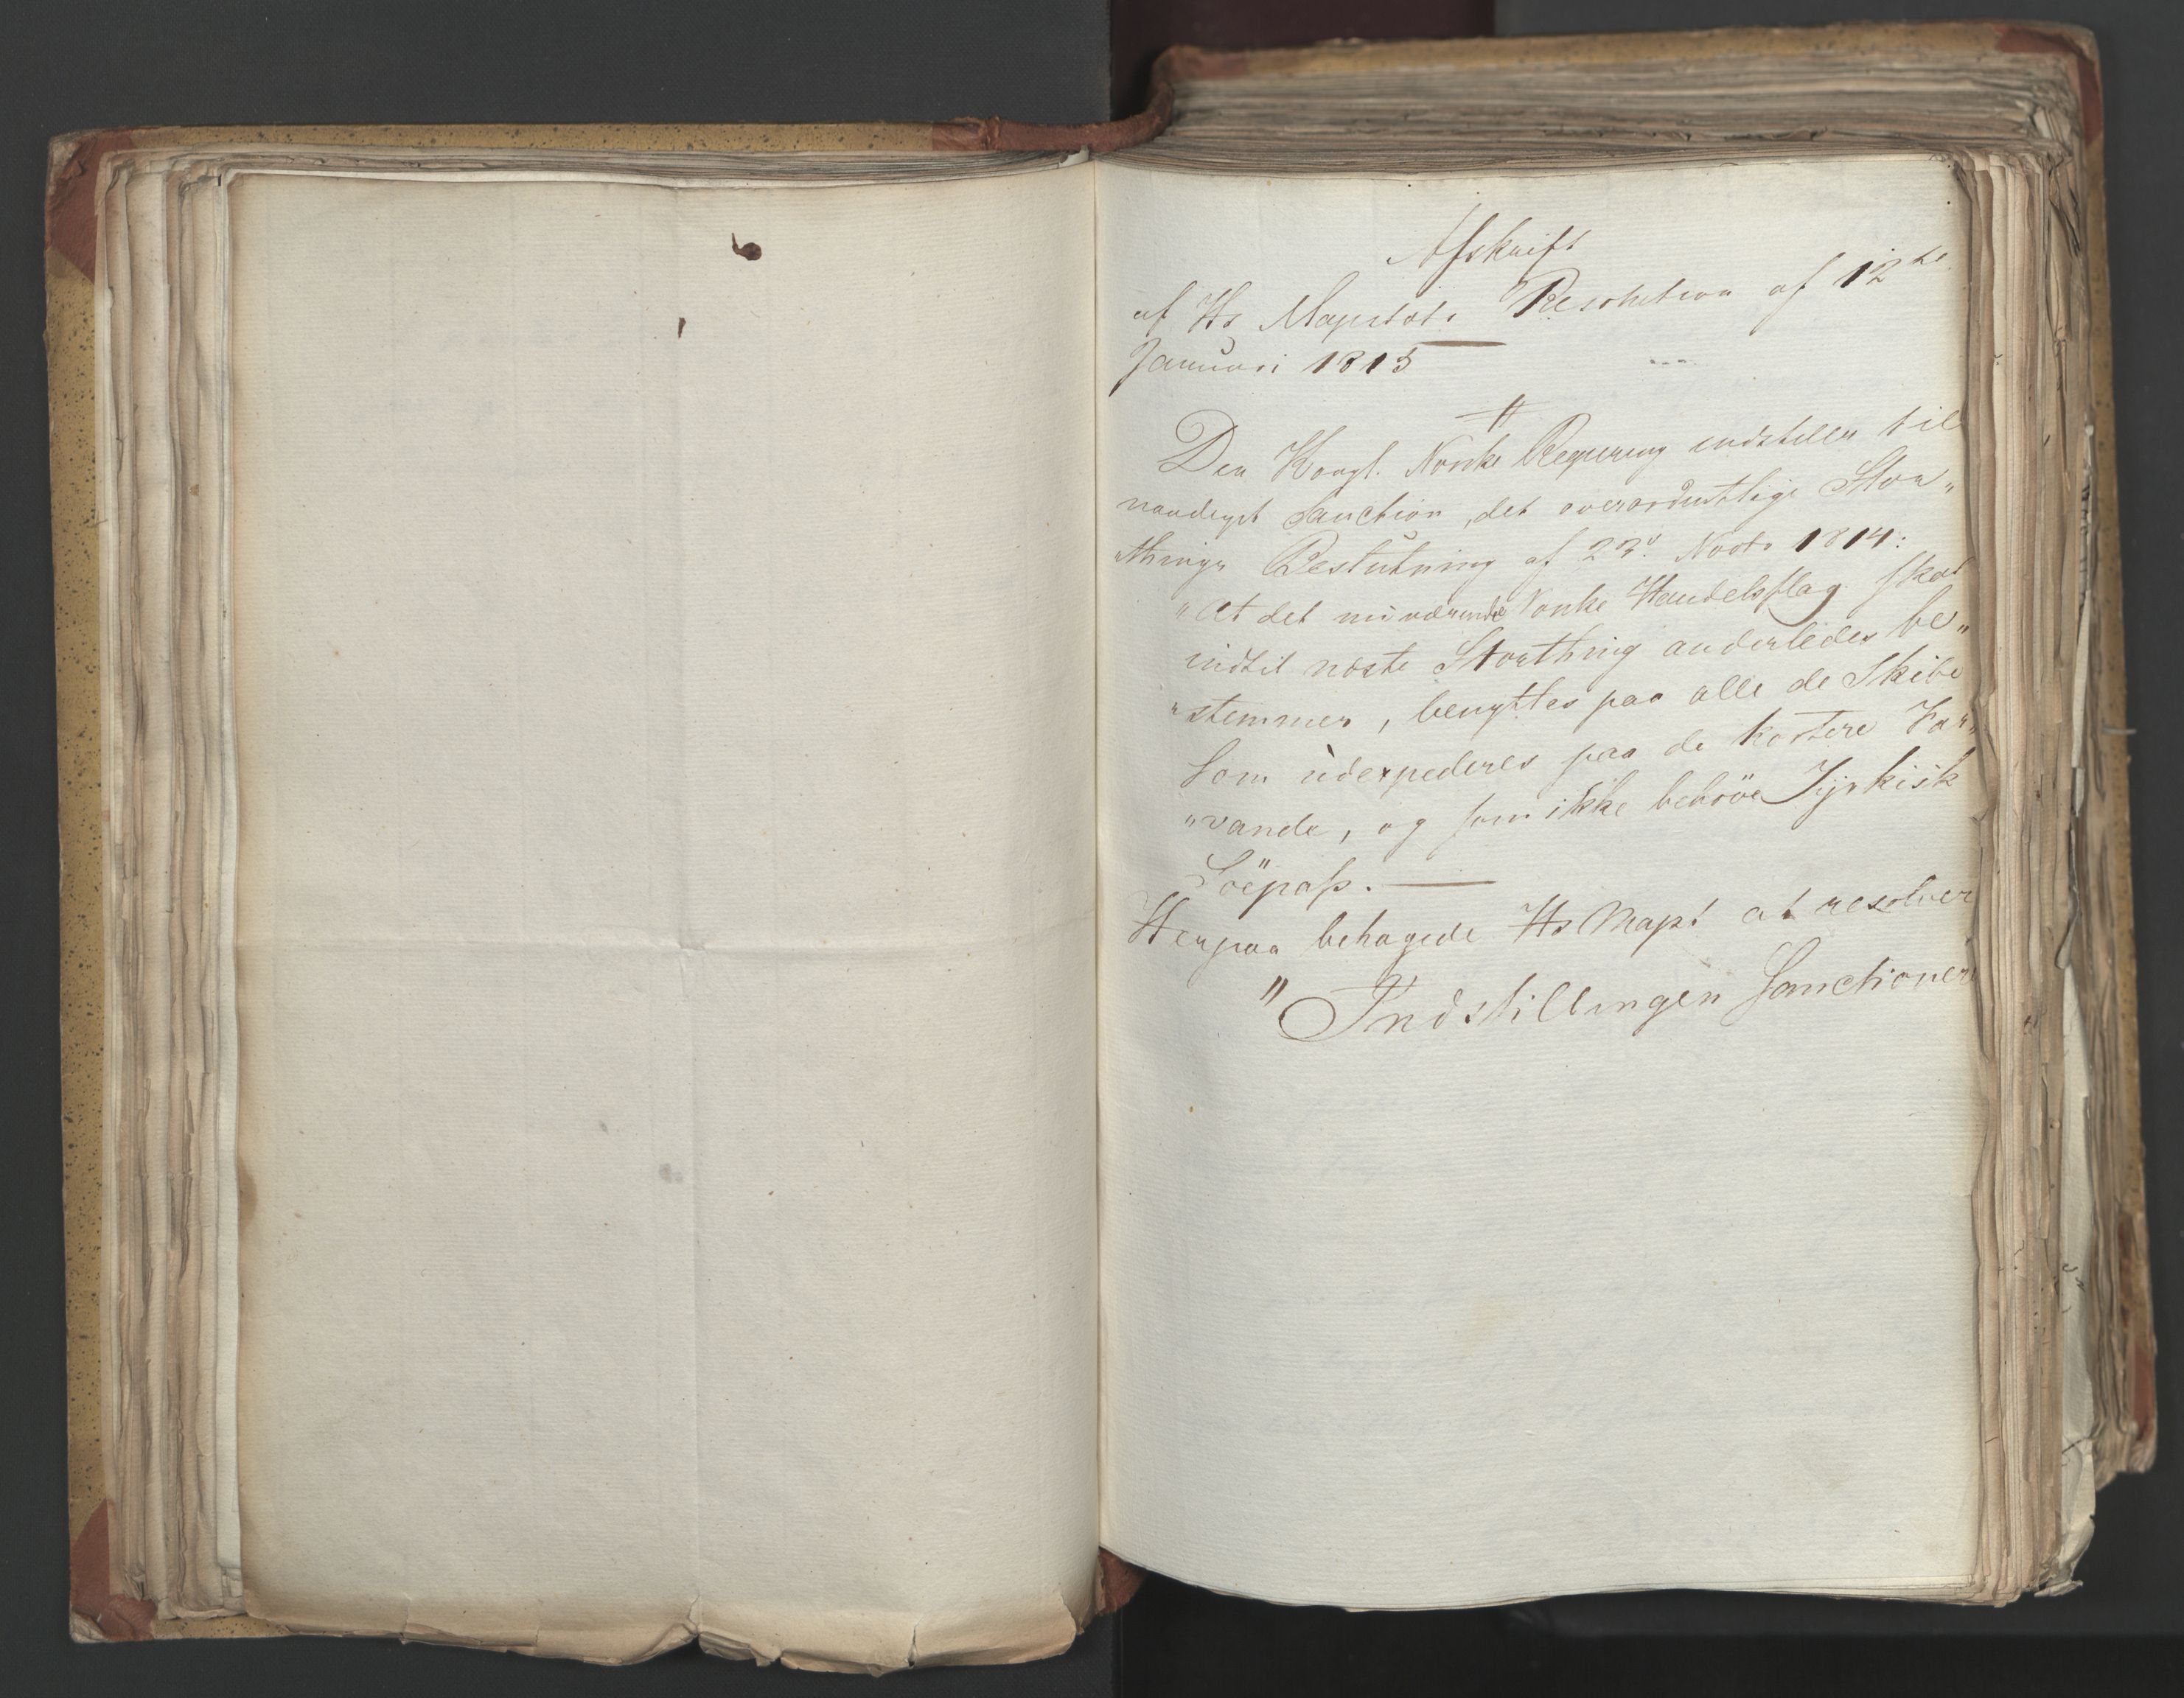 Afskrift
af Hs Majestæts Resolution af 12te
Januari 1815
Den Kongl. Norske Regjering indstiller til
naadigst Sanction, det overordentlige Stor„
„things Beslutning af 23d Novbr 1814:
"At det nuværende Norske Handelsflag skal
indtil næste Storthing anderledes be„
„stemmer, benyttes paa alle de Skibe
som udexpederes paa de kortere Far„
„vande, og som ikke behøve Tyrkisk
Söepass. —
Herpaa behagede Hs Majt at resolvere
" Indstillingen Sanctioneres